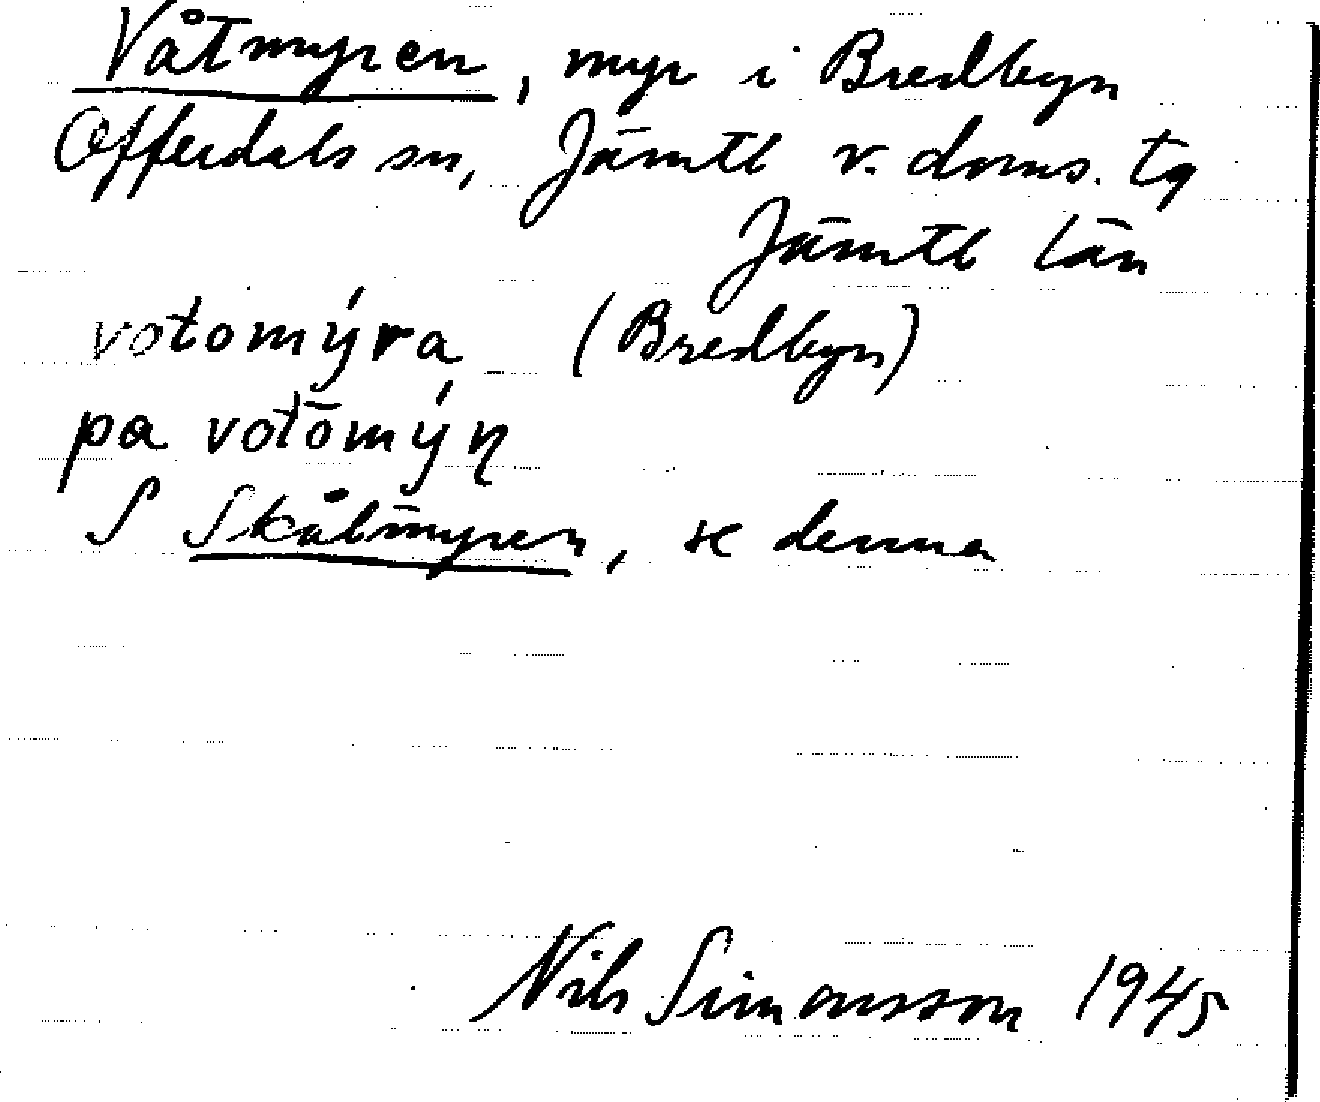 Våtmyren, myr i Bredbyn
Offerdals sn, Jämtl v. doms. tg
Jämtl län
votomýra (Bredbyn)
pa votōmýn
S Skålmyren, se denna
Nils Simonsson 1945